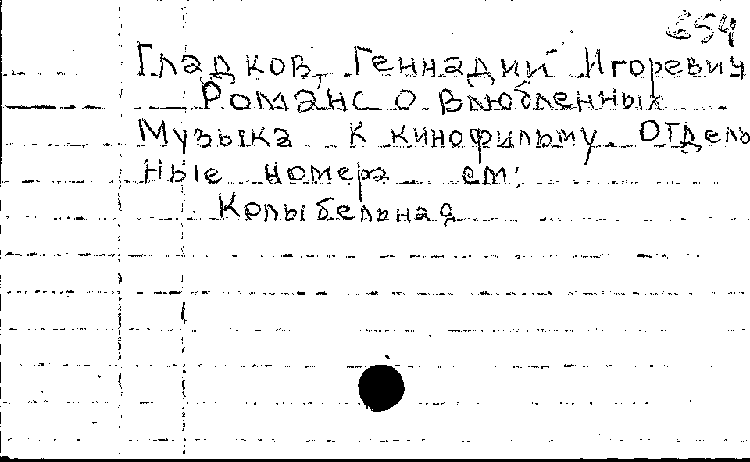 654
Гладков, Геннадий Игоревич
Романс о влюбленных
Музыка к кинофильму. Отдель
ные номера см:
Колыбельная